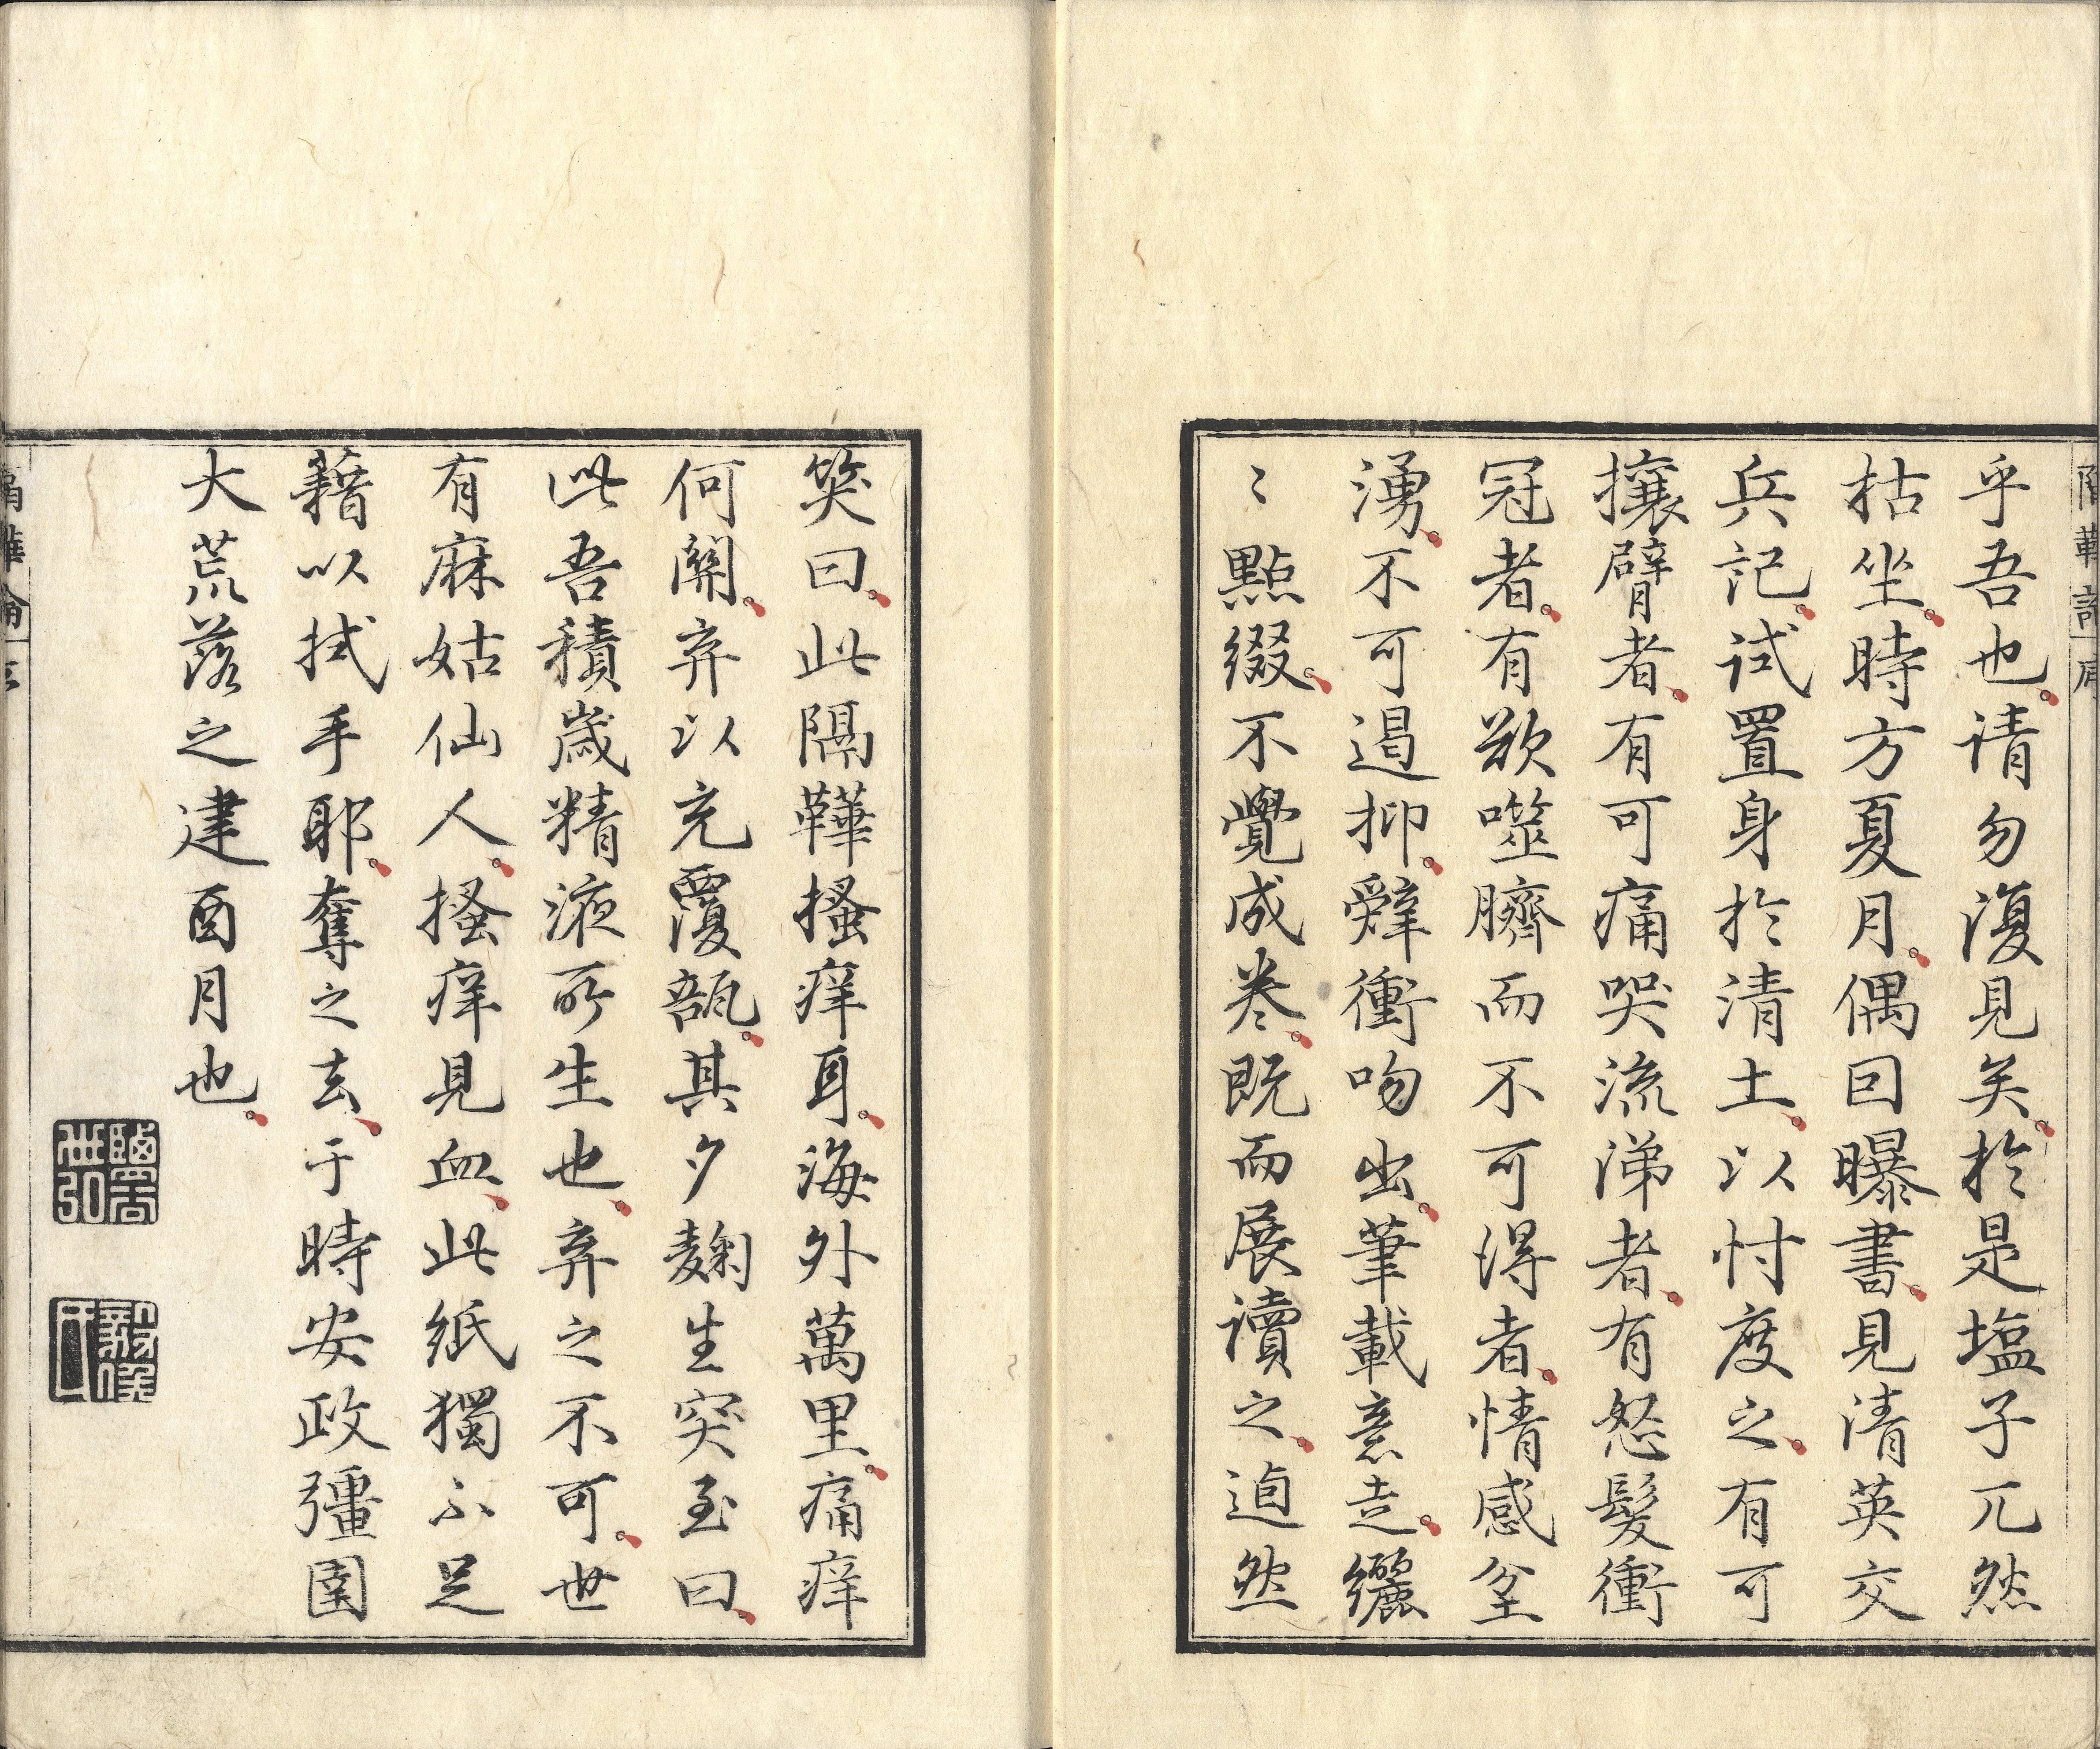 乎吾也请勿復見矣於是塩子兀然
枯坐時方夏月偶曰曝書見清英交
兵記试置身於清土以忖度之有可
攘臂者有可痛哭流涕者有怒髮衝
冠者有欲噬臍而不可得者情感坌
湧不可遏抑辤衝吻出筆載意走纚
〻點綴不覺成卷既而展讀之逌然
笑曰此隔鞾搔痒耳海外萬里痛痒
何關弃以充覆瓿其夕麹生突至曰
此吾積歲精液所生也弃之不可世
有麻姑仙人搔痒見血此紙獨不足
藉以拭手耶奪之去于時安政彊圉
大荒落之建酉月也